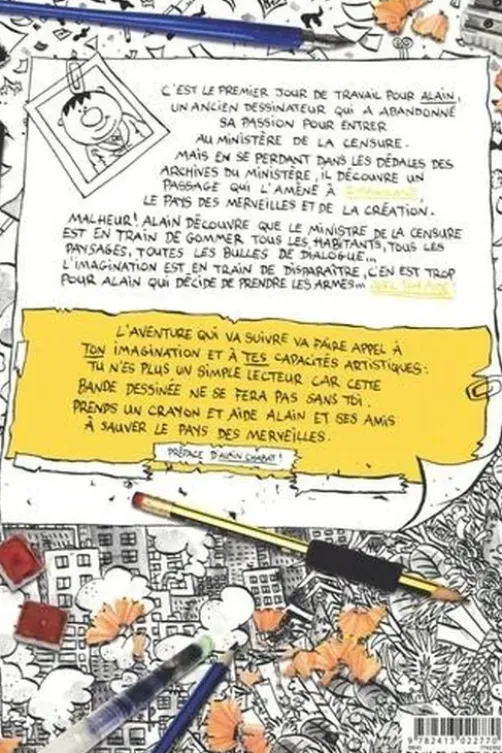 C'EST LE PREMIER JOUR DE TRAVAIL POUR ALAIN,
UN ANCIEN DESSINATEUR QUI A ABANDONNÉ
SA PASSION POUR ENTRER
AU MINISTÈRE DE LA CENSURE.
MAIS EN SE PERDANT DANS LES DÉDALES DES
ARCHIVES DU MINISTÈRE, IL DÉCOUVRE UN
PASSAGE QUI L'AMÈNE À
LE PAYS DES MERVEILLES ET DE LA CRÉATION.
MALHEUR! ALAIN DÉCOUVRE QUE LE MINISTRE DE LA CENSURE
EST EN TRAIN DE GOMMER TOUS LES HABITANTS, TOUS LES
PAYSAGES, TOUTES LES BULLES DE DIALOGUE...
L'IMAGINATION EST EN TRAIN DE DISPARAÎTRE, C'EN EST TROP
POUR ALAIN QUI DÉCIDE DE PRENDRE LES ARMES...
L'AVENTURE QUI VA SUIVRE VA FAIRE APPEL À
TON IMAGINATION ET À TES CAPACITÉS ARTISTIQUES:
TU N'ES PLUS UN SIMPLE LECTEUR CAR CETTE
BANDE DESSINÉE NE SE FERA PAS SANS TOI.
PRENDS UN CRAYON ET AIDE ALAIN ET SES AMIS
À SAUVER LE PAYS DES MERVEILLES.
PRÉFACE D'ALAIN CHABAT!
9 782413 022770